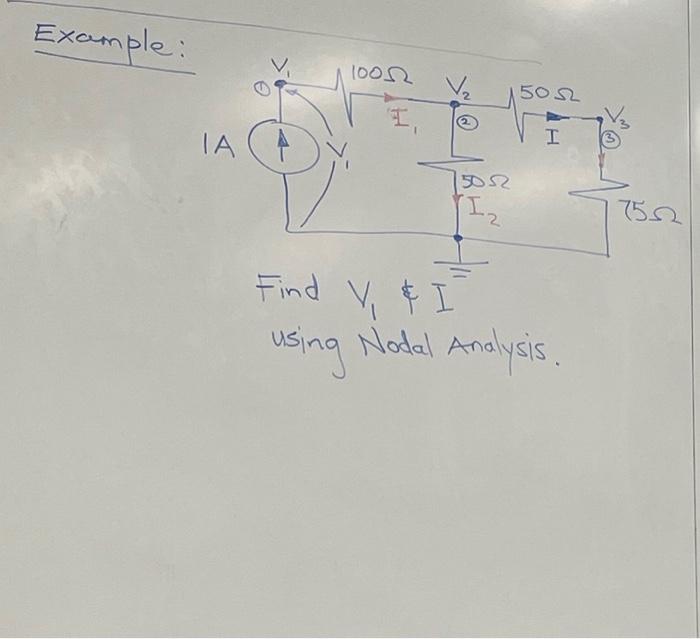 Example:
V₁ 100Ω V₂ 50Ω V₃
① I₁ ② I ③
1A V₁ 50Ω 75Ω
I₂
Find V₁ & I
using Nodal Analysis.